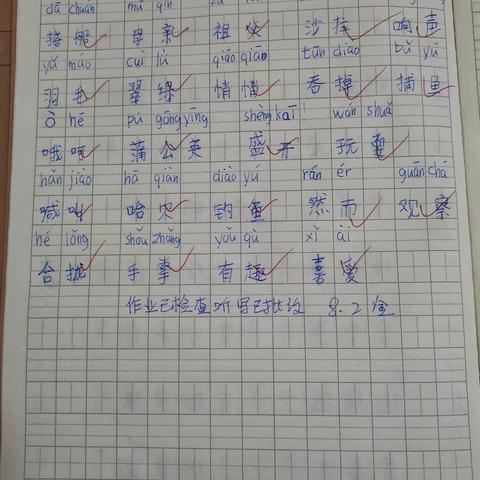 dā chuán mǔ qīn
搭船 母亲 祖父 沙拉 响声
yǔ máo cuì lǜ qiāo qiāo tūn diào bǔ yú
羽毛 翠绿 悄悄 吞掉 捕鱼
ò hē pú gōng yīng shèng kāi wán shuǎ
哦呵 蒲公英 盛开 玩耍
hǎn jiào hā qiàn diào yú rán ér guān chá
喊叫 哈欠 钓鱼 然而 观察
hé lǒng shǒu zhǎng yǒu qù xǐ ài
合拢 手掌 有趣 喜爱
作业已检查听写已批改 8.2